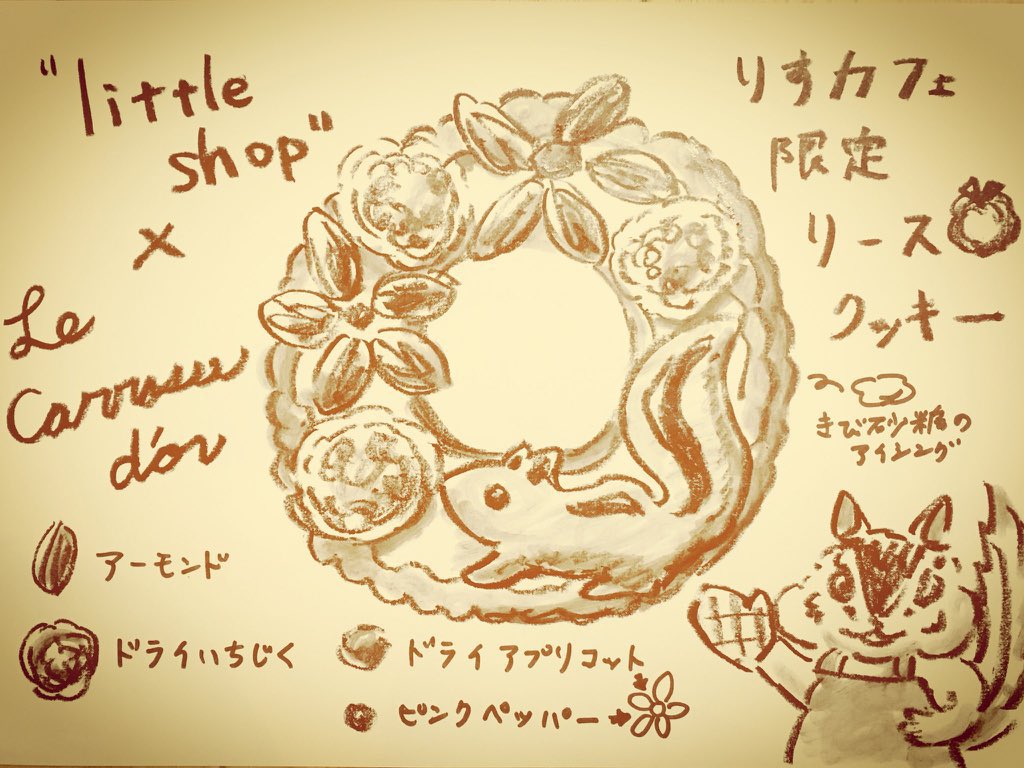 "little
shop"
×
Le
d'or
りすカフェ
限定
リース
クッキー
きび砂糖の
アイシング
アーモンド
ドライいちじく
ドライアプリコット
ピンクペッパー